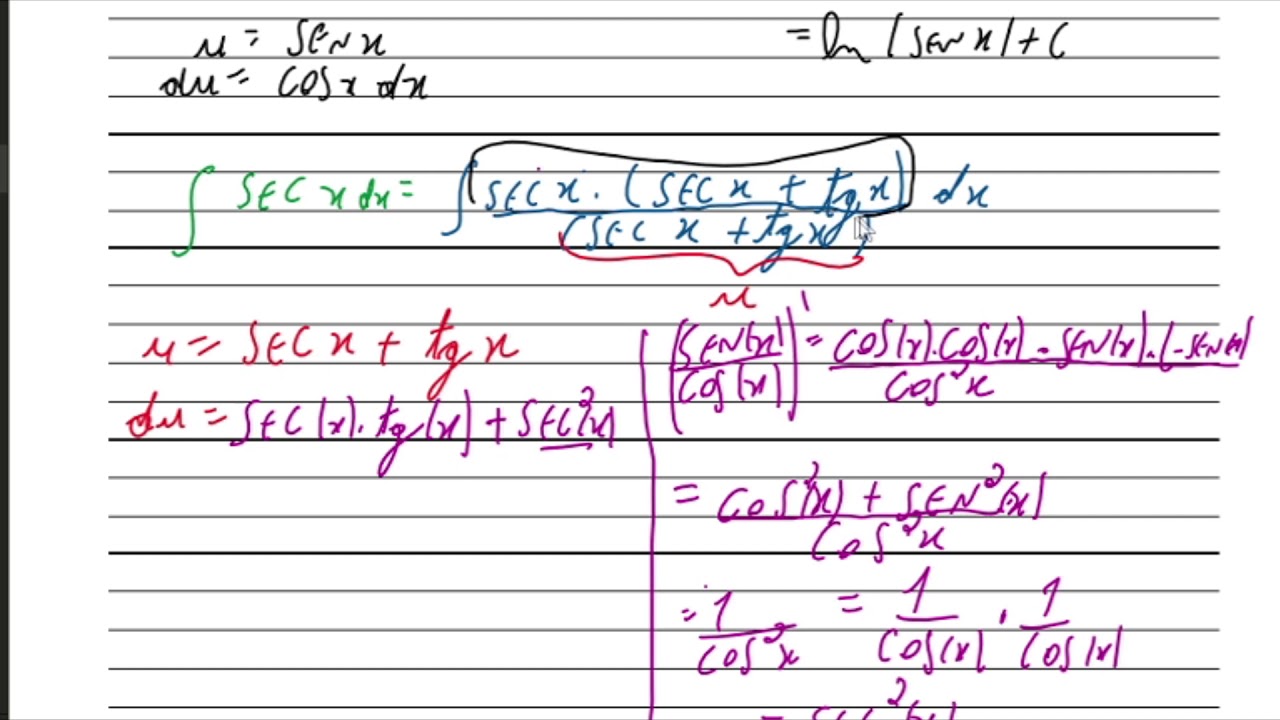 u = SEN x
du = COS x dx
= ln |SEN x| + C
∫ SEC x dx = ∫ SEC x . (SEC x + tg x) / (SEC x + tg x) dx
u
u = SEC x + tg x
du = SEC(x) . tg(x) + SEC²(x)
(SEN(x) / COS(x))' = COS(x).COS(x) - SEN(x).(-SEN(x)) / COS²x
= COS²(x) + SEN²(x) / COS²x
= 1 / COS²x = 1 / COS(x) . 1 / COS(x)
= SEC²(x)